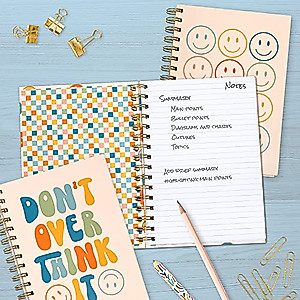 NOTES
SUMMARY
MAIN POINTS
BULLET POINTS
DIAGRAMS AND CHARTS
OUTLINES
TOPICS
ADD BRIEF SUMMARY
HIGHLIGHTING MAIN POINTS
DON'T
OVER
THINK
IT